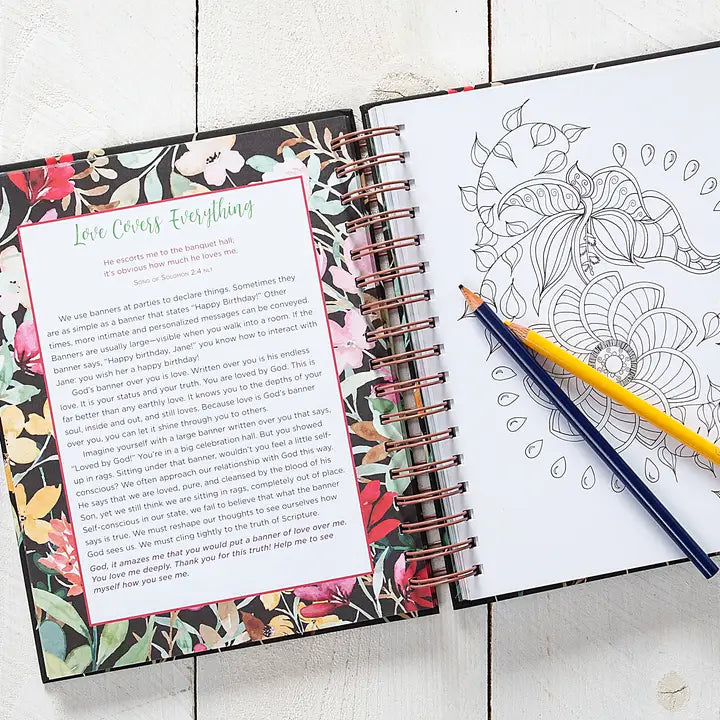 Love Covers Everything
He escorts me to the banquet hall;
it's obvious how much he loves me.
Song of Solomon 2:4 NLT
We use banners at parties to declare things. Sometimes they
are as simple as a banner that states "Happy Birthday!" Other
times, more intimate and personalized messages can be conveyed.
Banners are usually large—visible when you walk into a room. If the
banner says, "Happy birthday, Jane!" you know how to interact with
Jane: you wish her a happy birthday!
God's banner over you is love. Written over you is his endless
love. It is your status and your truth. You are loved by God. This is
far better than any earthly love. It knows you to the depths of your
soul, inside and out, and still loves. Because love is God's banner
over you, you can let it shine through you to others.
Imagine yourself with a large banner written over you that says,
"Loved by God!" You're in a big celebration hall. But you showed
up in rags. Sitting under that banner, wouldn't you feel a little self-
conscious? We often approach our relationship with God this way.
He says that we are loved, pure, and cleansed by the blood of his
Son, yet we still think we are sitting in rags, completely out of place.
Self-conscious in our state, we fail to believe that what the banner
says is true. We must reshape our thoughts to see ourselves how
God sees us. We must cling tightly to the truth of Scripture.
God, it amazes me that you would put a banner of love over me.
You love me deeply. Thank you for this truth! Help me to see
myself how you see me.